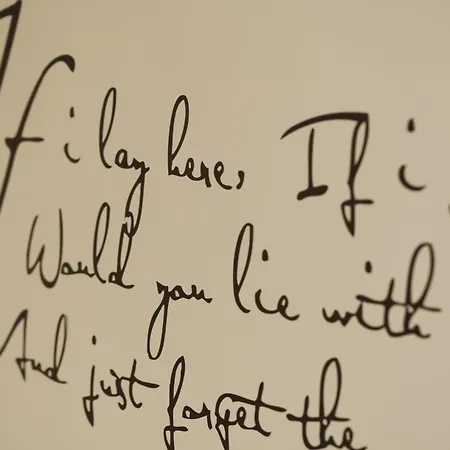 If i lay here, If i
Would you lie with
And just forget the